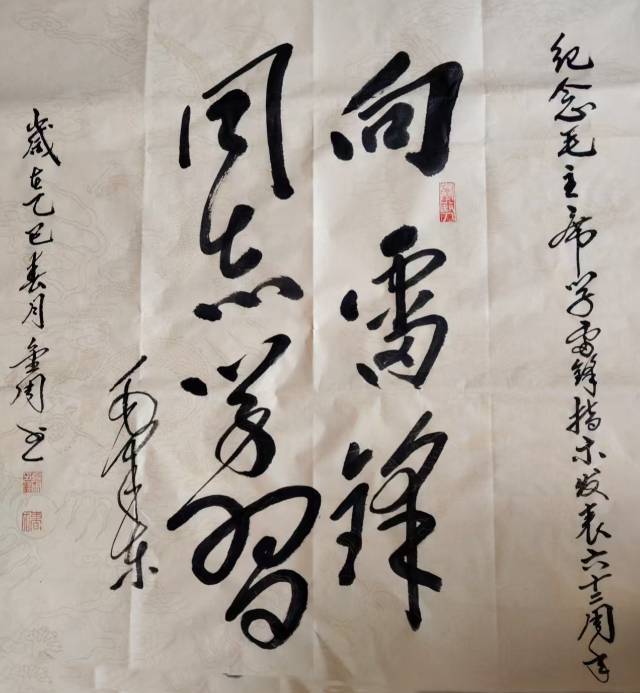 纪念毛主席学雷锋指示发表六十二周年
向雷锋
同志学习
毛泽东
岁在乙巳春月金周书